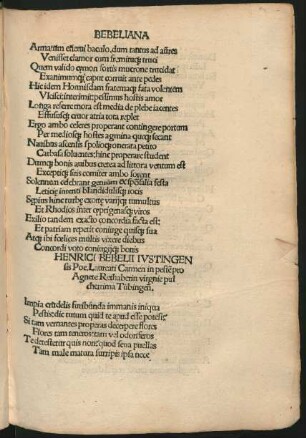 BEBELIANA
Armatum effoeti baculo, dum tantus ad aures
Venisset clamor cum fremituqȝ truci
Quem valido eymon fortis mucrone trucidat
Exanimumqȝ caput corruit ante pedes
Hic idem Hormisdam fraternaqȝ fata volentem
Vlcisci: interimit: pessimus hostis amor
Longa referre mora est media de plebe iacentes
Effususqȝ cruor atria tota replet
Ergo ambo celeres properant contingere portum
Per mediosqȝ hostes agmina quiqȝ secant
Nauibus ascensis spolioqȝ onerata petito
Carbasa soluentes: hinc properare student
Dumqȝ bonis auibus cretea ad littora ventum est
Exceptiqȝ suis comiter ambo forent
Solennem celebrant genium &
Letitiqȝ inter blandidulisqȝ iocis
Sepius hinc turbe exorte varijqȝ tumultus
Et Rhodios inter cyprigenasqȝ viros
Exilio tandem exacto concordia facta est:
Et patriam repetit coniuge quisqȝ sua
Atqȝ ibi foelices multis vixere diebus
Concordi voto coniugijqȝ bonis
HENRICI BEBELII IVSTINGEN
sis Poe. Laureati Carmen in peste pro
Agnete Rathaberin virgine pul
cherrima Tubingen.
Impia crudelis furibunda immanis iniqua
Pestis dic rotum quid te apud esse potest
Si tam vernantes properas decerpere flores
Flores tam teneros tam vel odoriferos
Te detestetur quis non: quod seua puellas
Tam male matura surripis ipsa nece